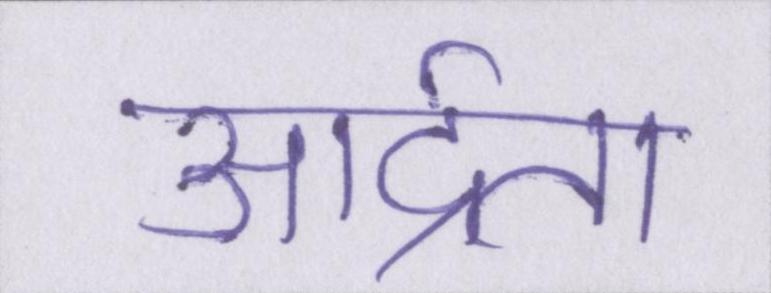 आर्द्रता